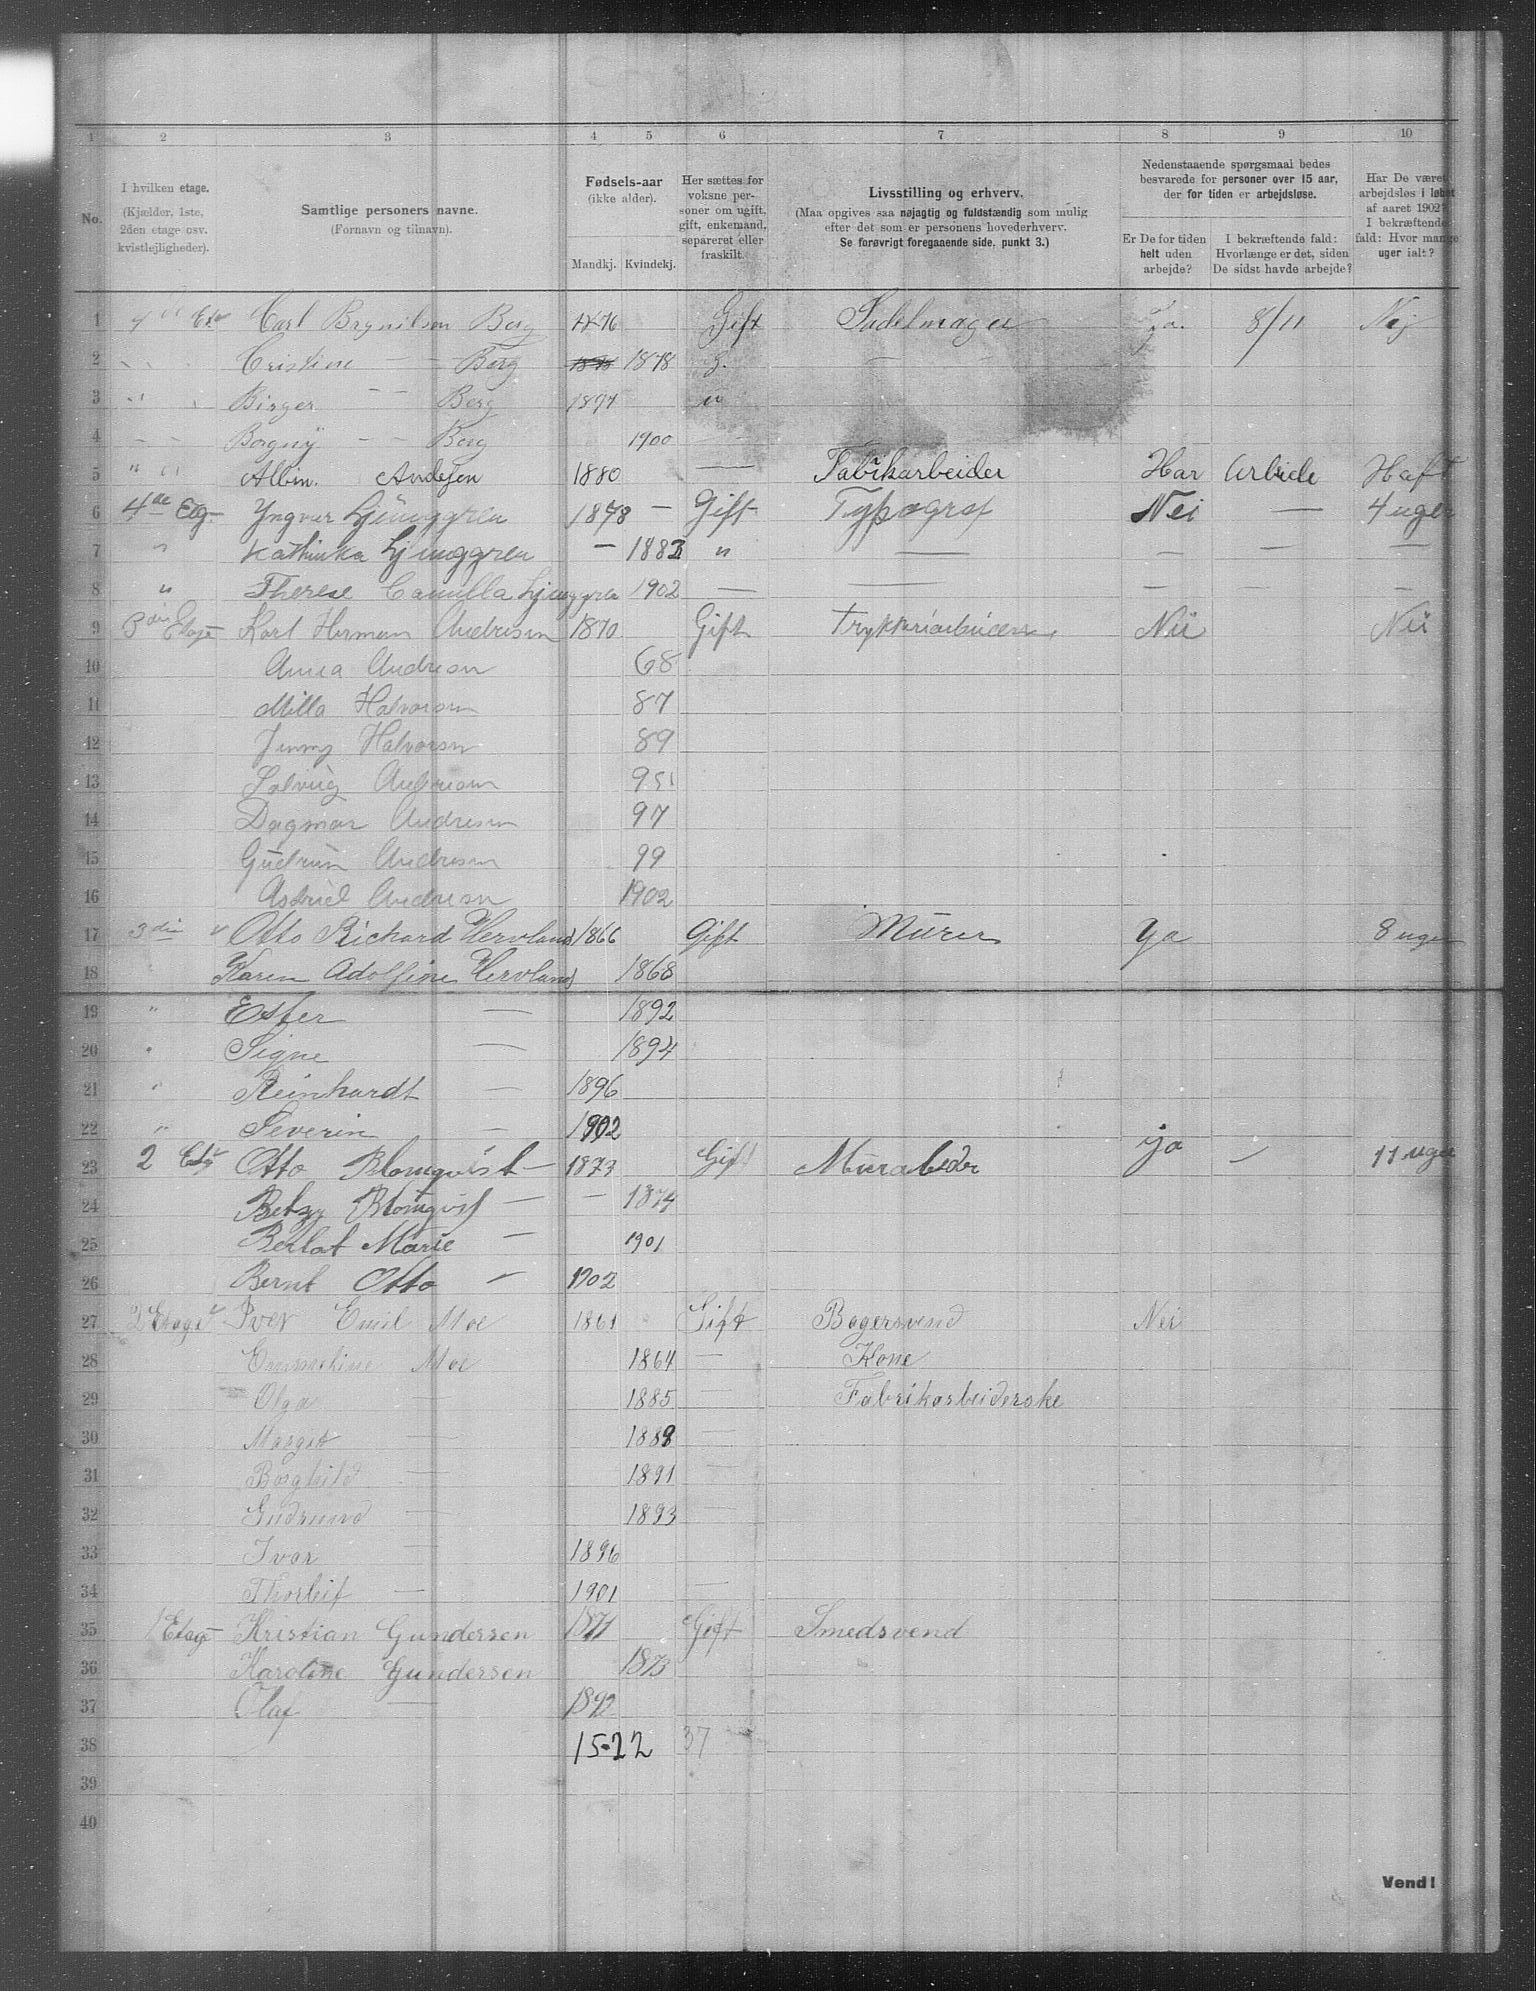 1 2 3 4 5 6 7 8 9 10
No.
I hvilken etage.
(Kjælder, 1ste, 2den etage osv. kvistlejligheder).
Samtlige personers navne.
(Fornavn og tilnavn).
Fødsels-aar
(ikke alder).
Mandkj. Kvindekj.
Her sættes for voksne personer om ugift, gift, enkemand, separeret eller fraskilt.
Livsstilling og erhverv.
(Maa opgives saa nøjagtig og fuldstændig som mulig efter det som er personens hovederhverv.
Se forøvrigt foregaaende side, punkt 3.)
Nedenstaaende spørgsmaal bedes besvarede for personer over 15 aar, der for tiden er arbejdsløse.
Er De for tiden helt uden arbejde?
I bekræftende fald: Hvorlænge er det, siden De sidst havde arbejde?
Har De været arbejdsløs i løbet af aaret 1902? I bekræftende fald: Hvor mange uger ialt?
1 Carl Brynilsen Berg 1876 Gift Sadelmager Ja. 8/11 Nej
2 Cristine — Berg 1878 g. —
3 Birger — — Berg 1897 u
4 Borgny — — Berg 1900 —
5 " " Albin. Andersen 1880 — Fabrikarbeider Har Arbeide Haft
6 4de Etg. Yngvar Ljunggren 1878 — Gift Typograf Nei — 4 uger
7 " Kathinka Ljunggren — 1883 " — — — —
8 " Therese Camilla Ljunggren 1902 — — — —
9 3die Etage Karl Herman Andresen 1870 Gift Trykkeriarbeider Nei Nei
10 Anna Andresen 68
11 Milla Halvorsen 87
12 Jenny Halvorsen 89
13 Solveig Andresen 95
14 Dagmar Andresen 97
15 Gudrun Andresen 99
16 Astrid Andresen 1902
17 3die Otto Richard Hervland 1866 Gift Murer Ja 8 uger
18 Karen Adolfine Hervland 1868
19 " Ester — 1892
20 " Signe — 1894
21 " Reinhardt — 1896
22 " Severin — 1902
23 2 Etg Otto Blomqvist — 1873 Gift Murarbeder ja — 11 uger
24 Betzy Blomqvist — — 1874
25 Berlat Marie — 1901
26 Bernt Otto — 1902
27 2 Etage Iver Emil Moe 1861 Gift Bagersvend Nei
28 Emmeline Moe 1864 — Kone
29 Olga — 1885 — Fabrikarbeiderske
30 Margit — 1888 —
31 Borghild — 1891 —
32 Gudrund — 1893 —
33 Ivar — 1896
34 Thorleif — 1901 —
35 1 Etage Kristian Gundersen 1871 Gift Smedsvend
36 Karoline Gundersen 1873
37 Olaf — 1892
38 15-22 37
39
40
Vend!